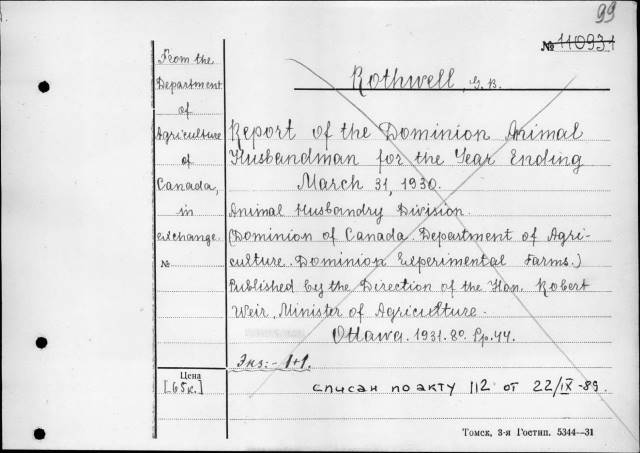 99
№ 110931
Rothwell, G.B.
From the
Department
of
Agriculture
of
Canada,
in
exchange.
№
Report of the Dominion Animal
Husbandman for the Year Ending
March 31, 1930.
Animal Husbandry Division.
(Dominion of Canada. Department of Agri-
culture. Dominion Experimental Farms.)
Published by the Direction of the Hon. Robert
Weir, Minister of Agriculture.
Ottawa. 1931. 8o. Pp. 44.
Экз:- 1+1.
Цена
[65к.]
списан по акту 112 от 22/IX-89.
Томск, 3-я Гостип. 5344—31